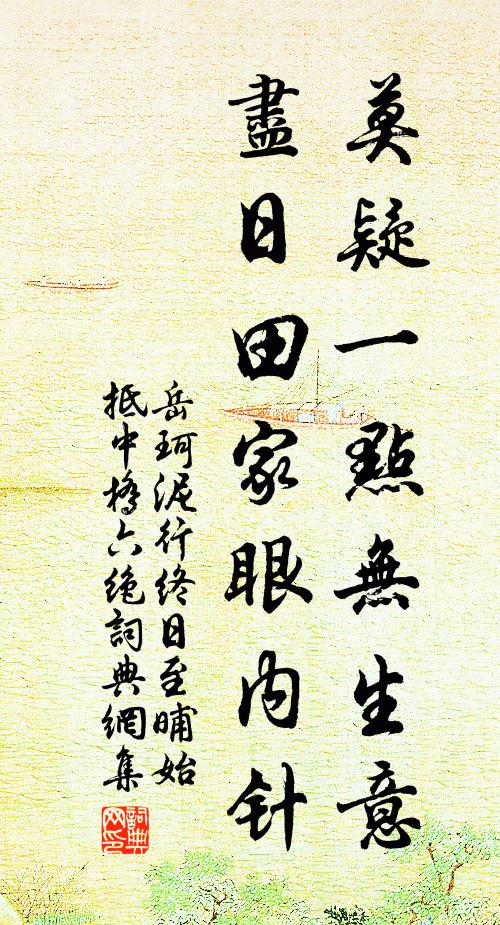 莫疑一點無生意
盡日田家眼内针
岳珂泥行终日至晡始
抵中橋六绝詞典網集
詞典网印